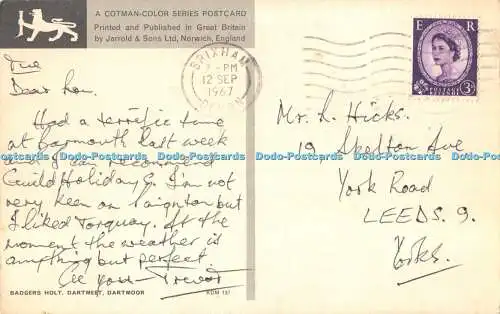 A COTMAN-COLOR SERIES POSTCARD
Printed and Published in Great Britain
by Jarrold & Sons Ltd, Norwich, England
BRIXHAM
PM
12 SEP
1967
DEVON
E R
POSTAGE
REVENUE
3D
Tue
Dear Len.
Had a terrific time
at Barmouth last week
and I can recommend
Guild Holidays. I'm not
very keen on Paignton but
I liked Torquay. At the
moment the weather is
anything but perfect.
All yours Trevor
Mr. L. Hicks.
19 Skelton Ave
York Road
LEEDS. 9.
Yorks.
BADGERS HOLT, DARTMEET, DARTMOOR
KDM 137
Dodo-Postcards Dodo-Postcards Dodo-Postcards Dodo-Postcards Dodo-Postcards Dodo-Postcards